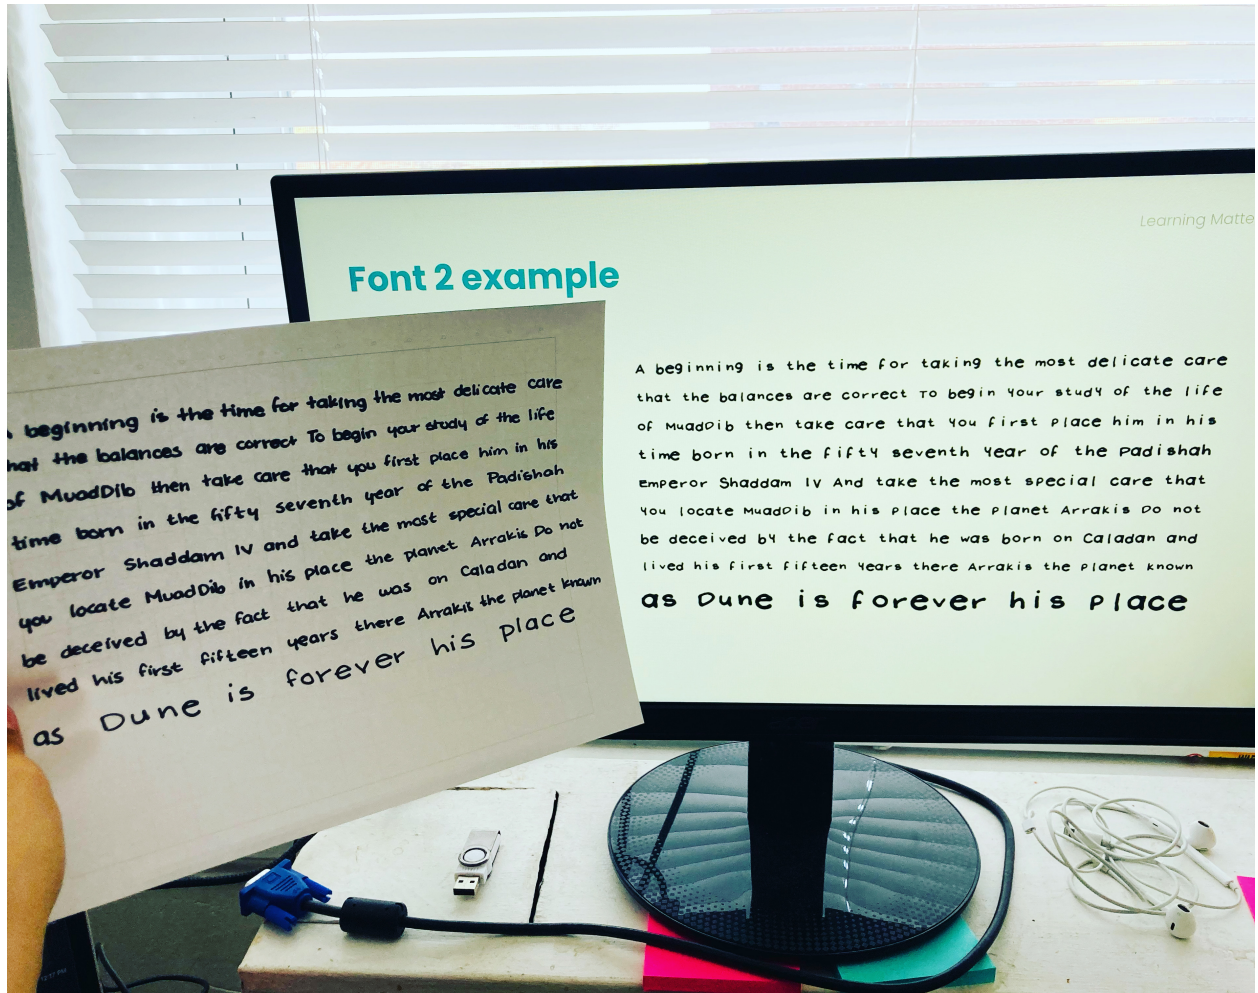 Learning Matte
Font 2 example
beginning is the time for taking the most delicate care
hat the balances are correct To begin your study of the life
of MuadDib then take care that you first place him in his
time born in the fifty seventh year of the Padishah
Emperor Shaddam IV and take the most special care that
you locate MuadDib in his place the planet Arrakis Do not
be deceived by the fact that he was on Caladan and
lived his first fifteen years there Arrakis the planet known
as Dune is forever his place
A beginning is the time for taking the most delicate care
that the balances are correct To begin your study of the life
of MuadDib then take care that you first place him in his
time born in the fifty seventh year of the Padishah
Emperor Shaddam IV And take the most special care that
you locate MuadDib in his place the planet Arrakis Do not
be deceived by the fact that he was born on Caladan and
lived his first fifteen years there Arrakis the planet known
as Dune is forever his place